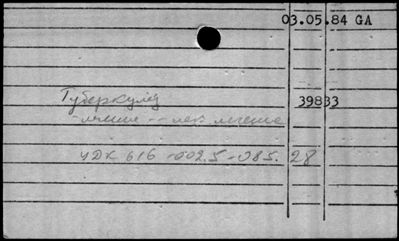 03.05.84 GA
Туберкулёз
39833
- лечение -- лек. лечение
УДК 616 -002.5-085. 28